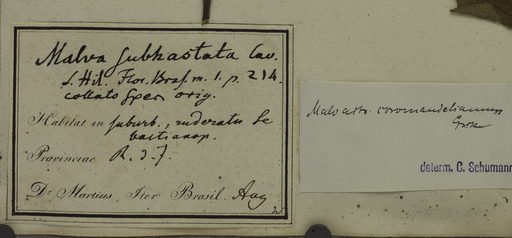 Malva subhastata Cav.
S. Hil. Flor. Bras. m. 1. p. 214.
collato spec. orig.
Habitat in suburb., ruderatis Se
bastianop.
Provinciae R. d. J.
Dr. Martius, Iter Brasil. Aug
Malvastr. coromandelianum
Grcke
determ. C. Schumann